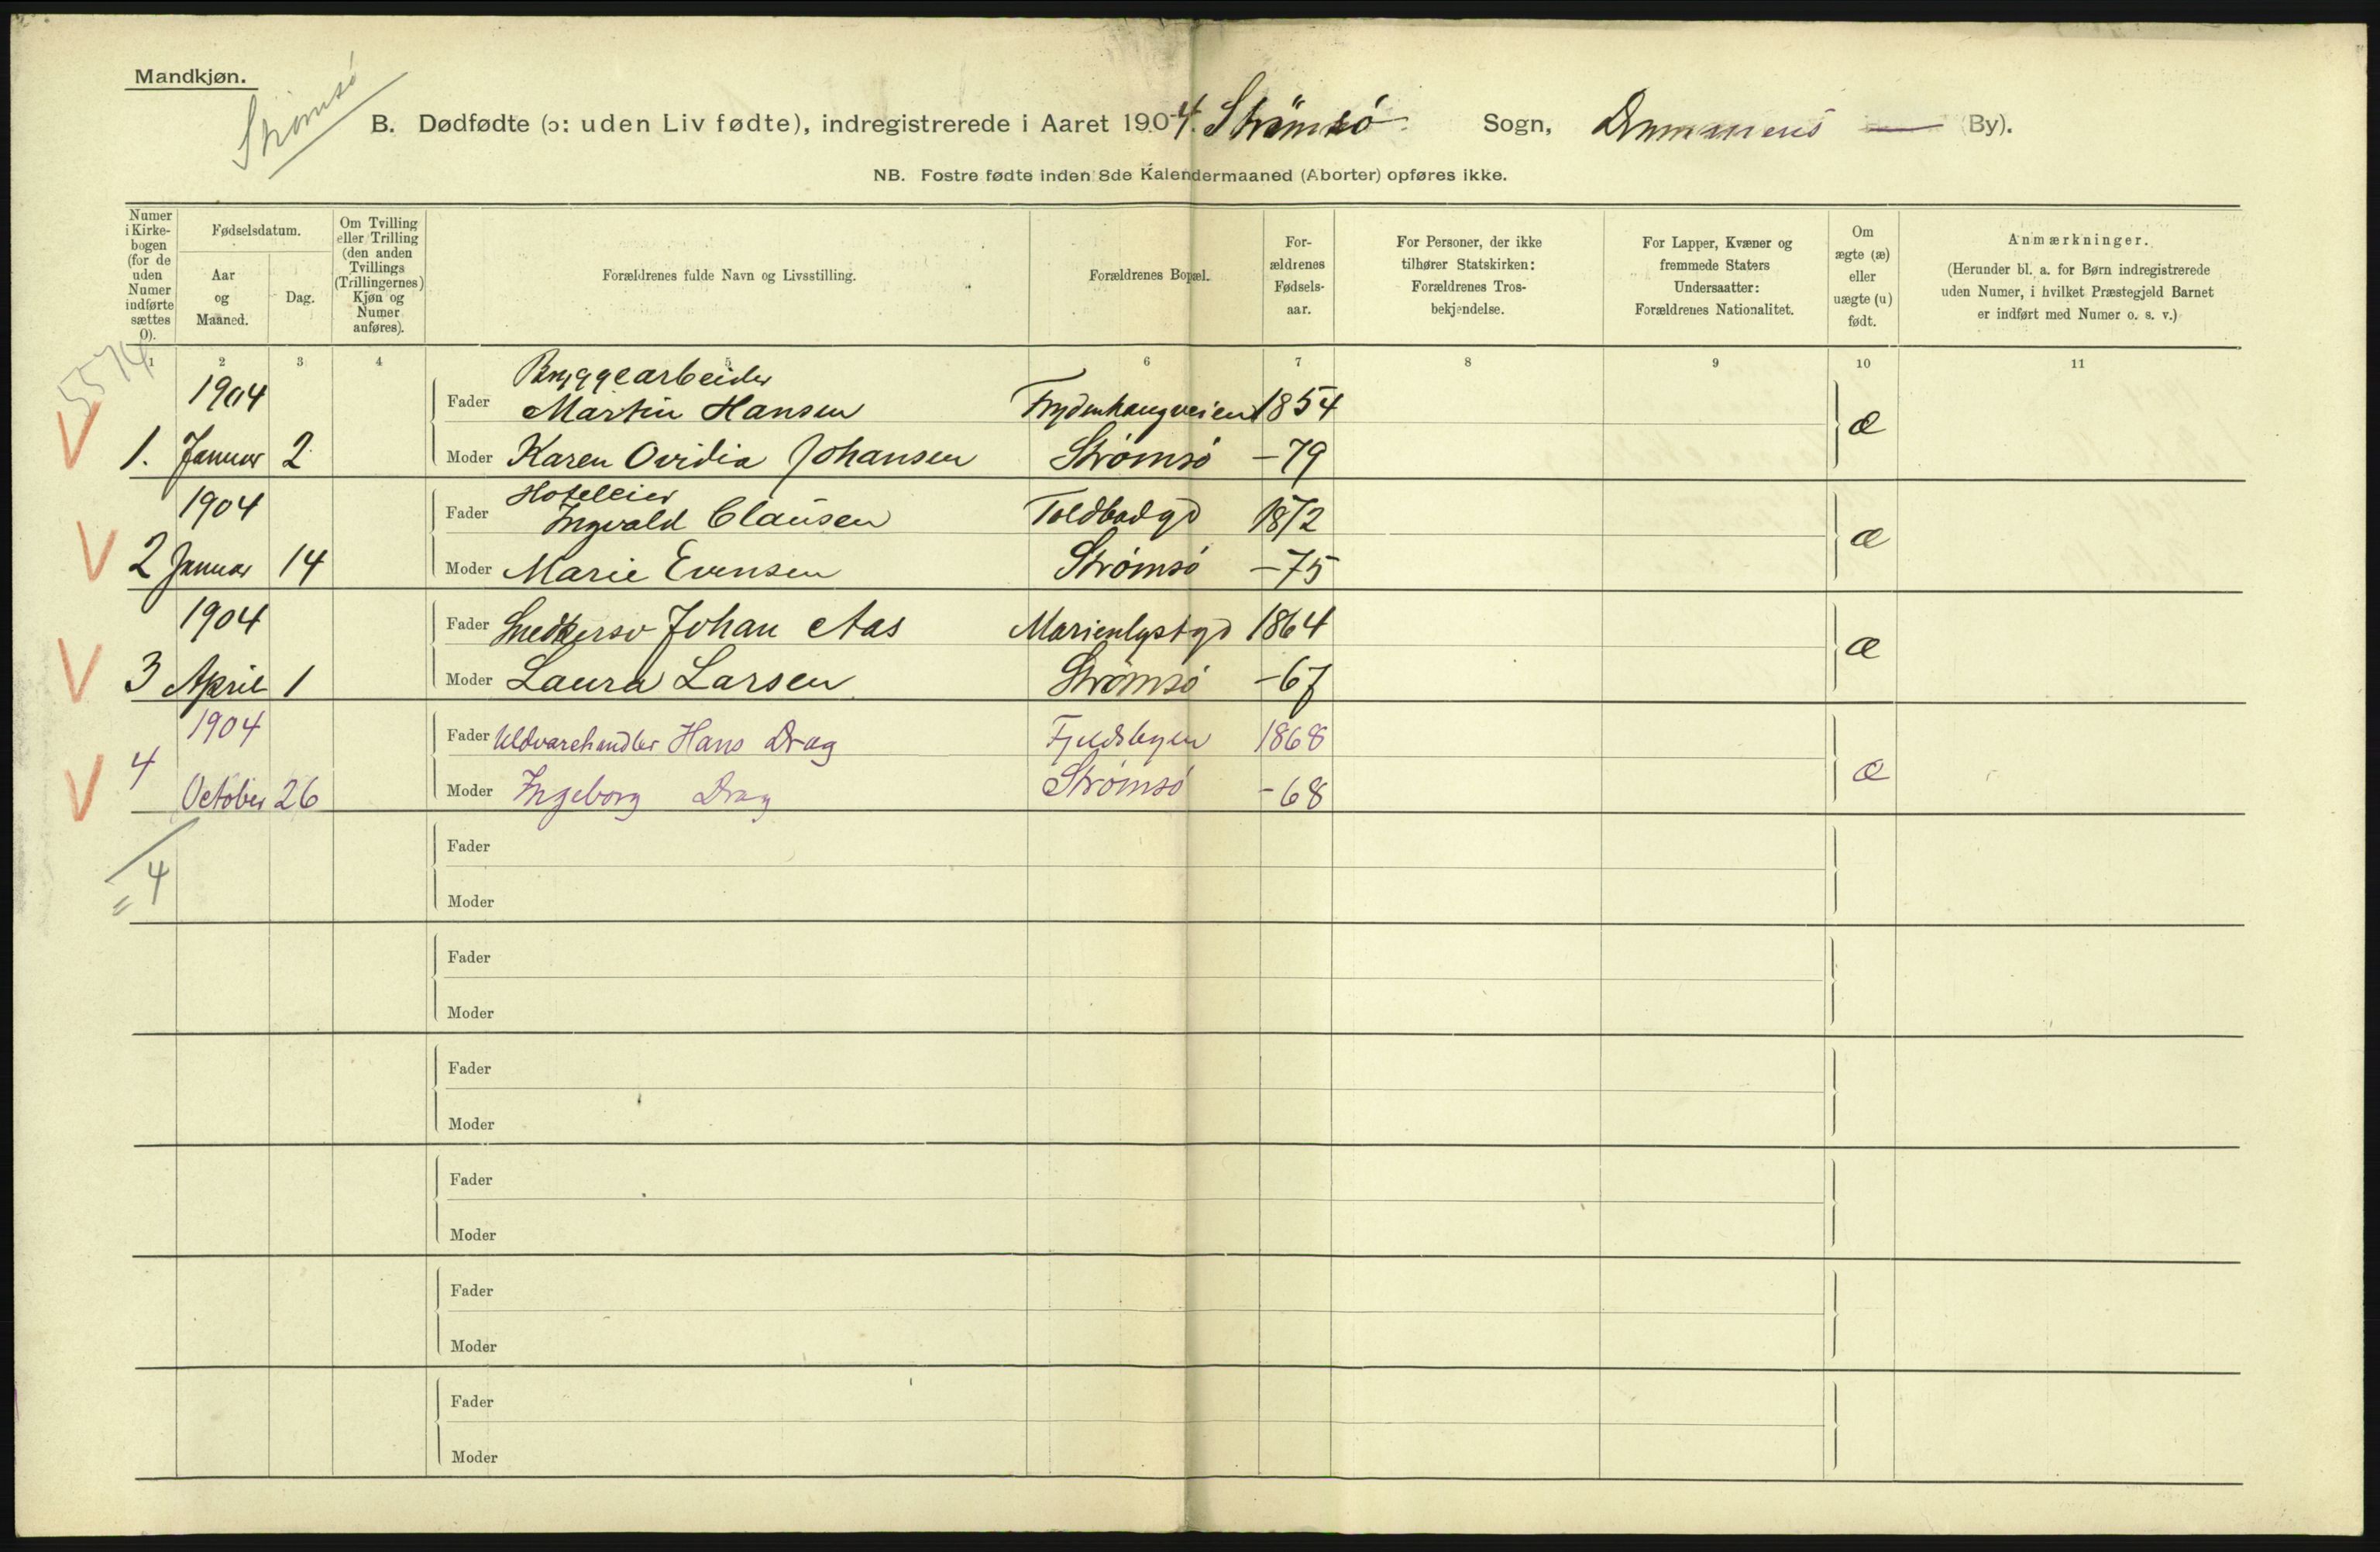 Mandkjøn.
Strømsø
B. Dødfødte (ɔ: uden Liv fødte), indregistrerede i Aaret 1904. Strømsø Sogn, Drammens — By).
NB. Fostre fødte inden 8de Kalendermaaned (Aborter) opføres ikke.
Numer i Kirke- bogen (for de uden Numer indførte sættes 0).
Fødselsdatum.
Aar og Maaned.
Dag.
Om Tvilling eller Trilling (den anden Tvillings (Trillingernes) Kjøn og Numer anføres).
Forældrenes fulde Navn og Livsstilling.
Forældrenes Bopæl.
For- ældrenes Fødsels- aar.
For Personer, der ikke tilhører Statskirken: Forældrenes Tros- bekjendelse.
For Lapper, Kvæner og fremmede Staters Undersaatter: Forældrenes Nationalitet.
Om ægte (æ) eller uægte (u) født.
Anmærkninger.
(Herunder bl. a. for Børn indregistrerede uden Numer, i hvilket Præstegjeld Barnet er indført med Numer o. s. v.)
1 2 3 4 5 6 7 8 9 10 11
5574
Bryggearbeider
1904 Fader Martin Hansen Frydenhaugveien 1854 æ
V 1. Januar 2 Moder Karen Ovidia Johansen Strømsø -79
Hoteleier
1904 Fader Ingvald Clausen Toldbodgd 1872 æ
V 2 Januar 14 Moder Marie Evensen Strømsø -75
1904 Fader Snedkersv Johan Aas Marienlystgd 1864 æ
V 3 April 1 Moder Laura Larsen Strømsø -67
1904 Fader Uldvarehandler Hans Drag Fjeldsbyen 1868
V 4 October 26 Moder Ingeborg Drag Strømsø -68 æ
Fader
= 4
Moder
Fader
Moder
Fader
Moder
Fader
Moder
Fader
Moder
Fader
Moder